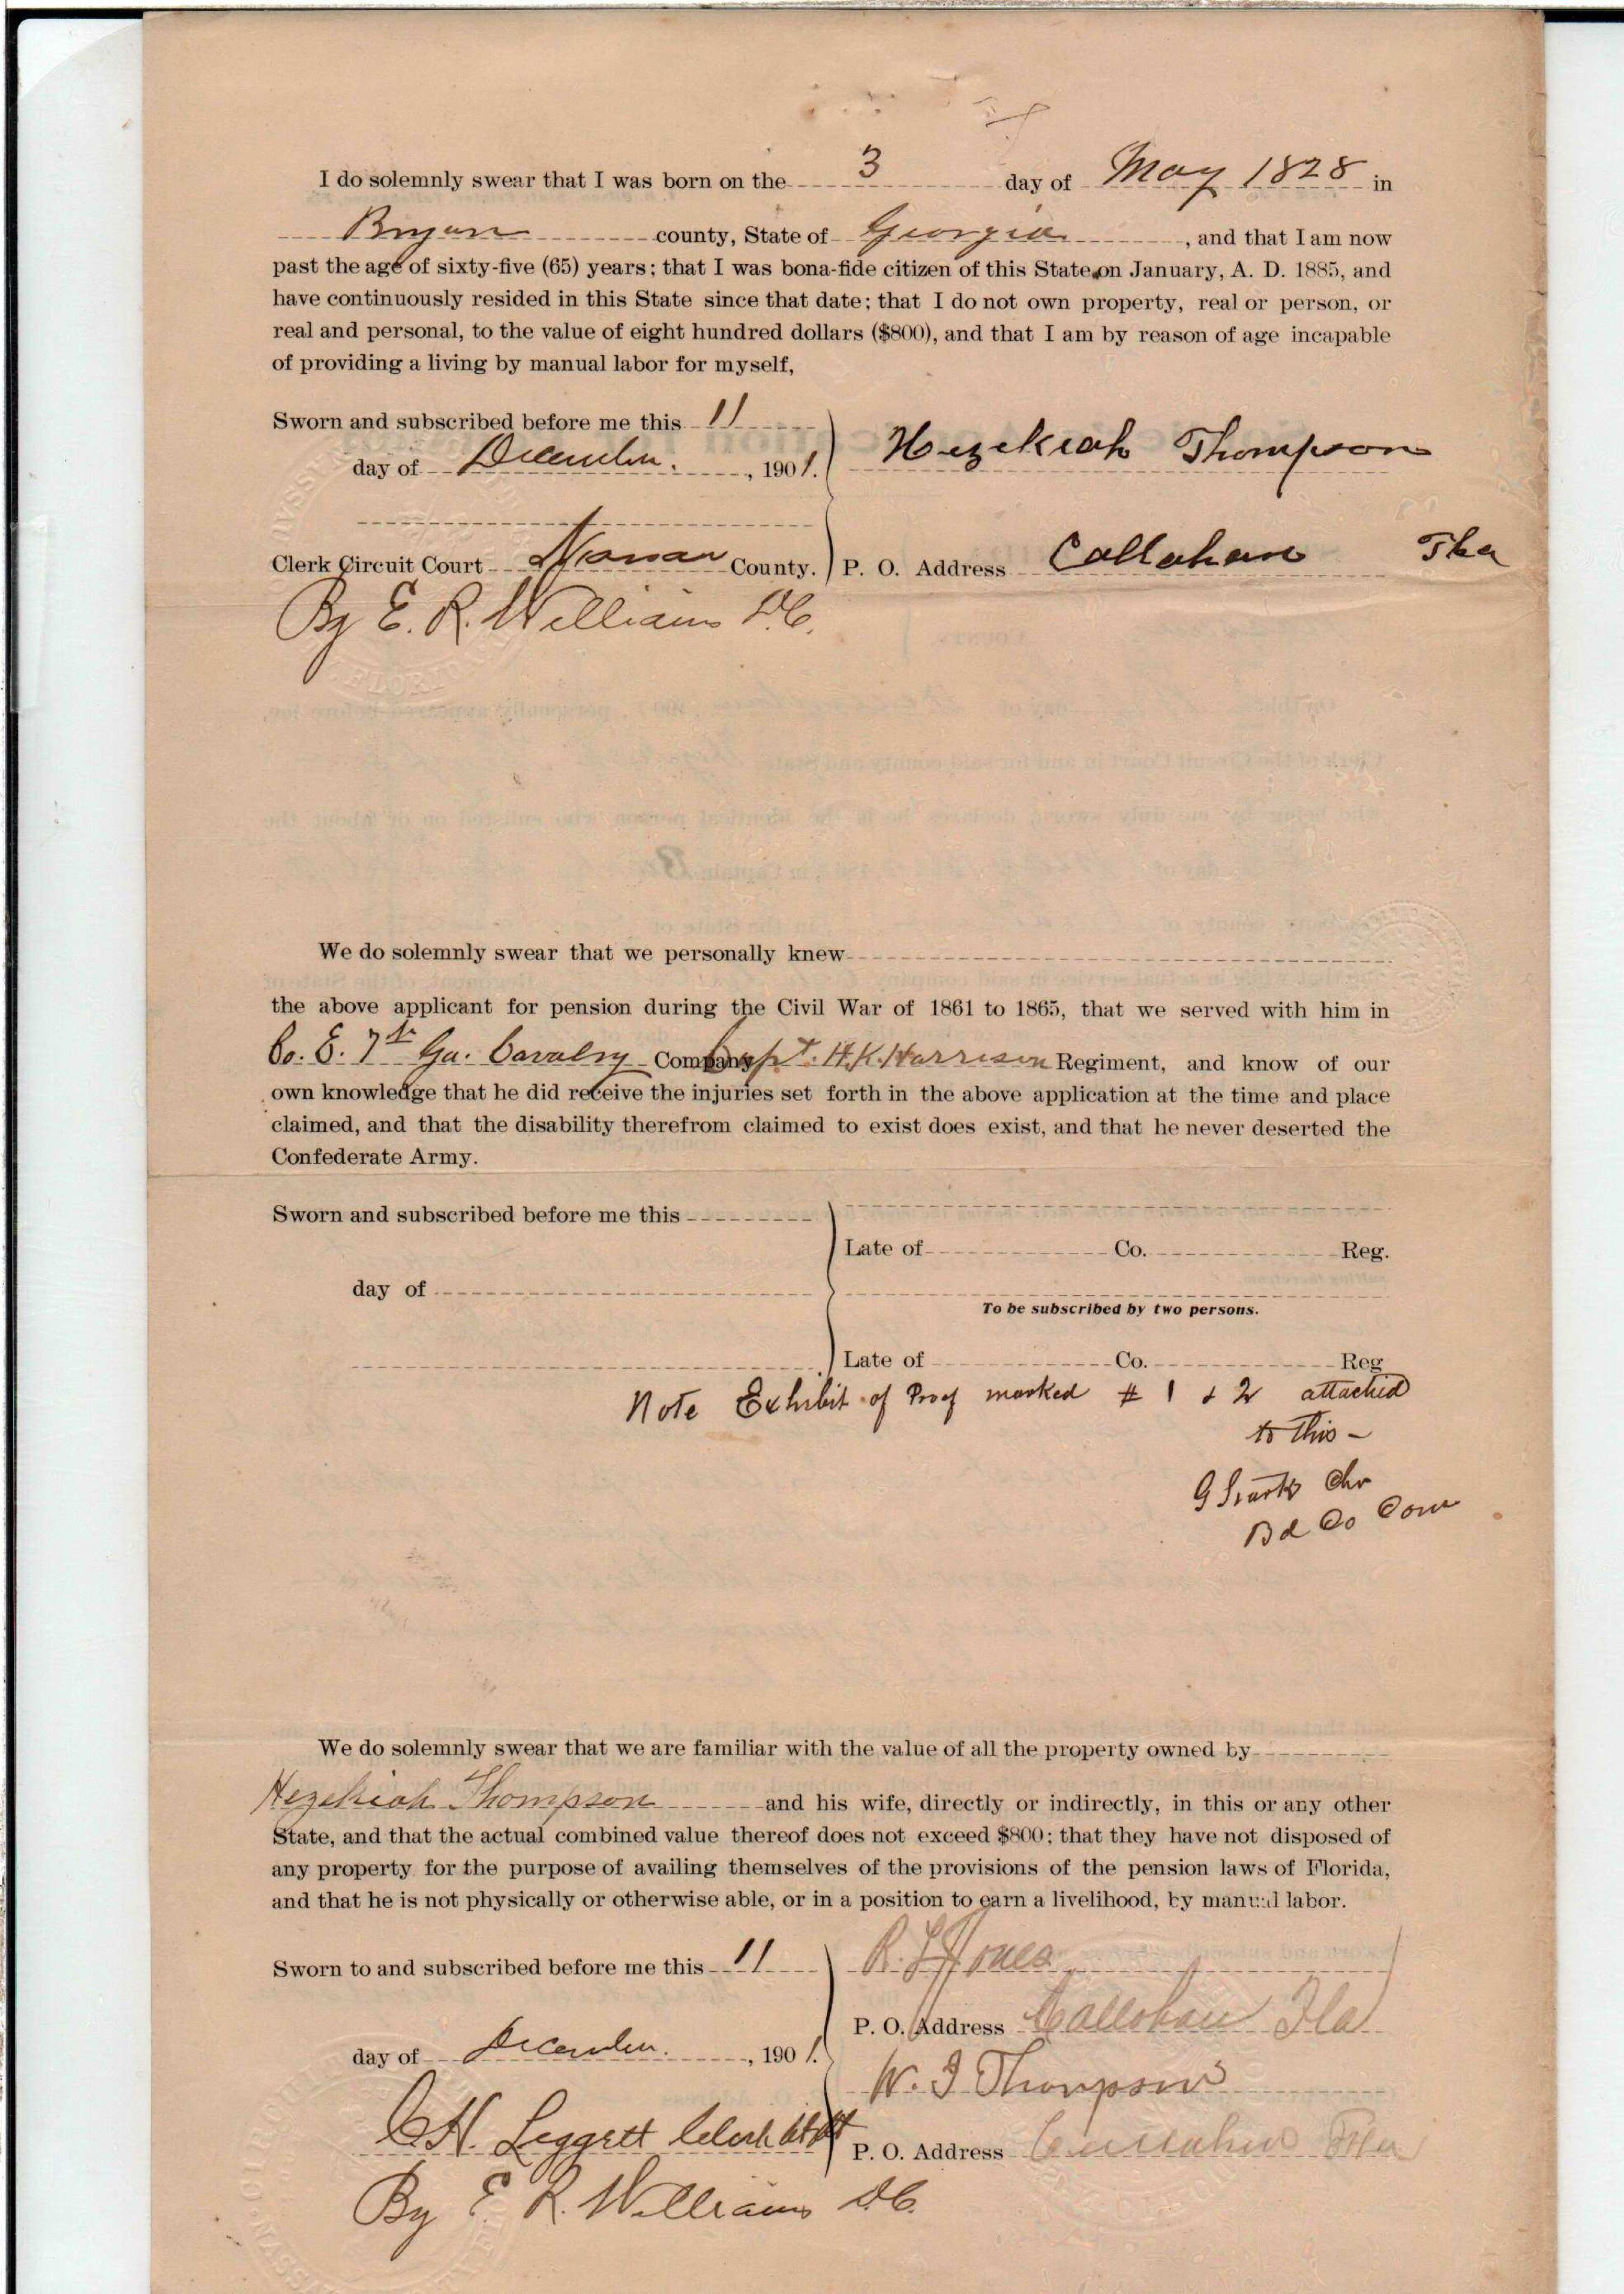 I do solemnly swear that I was born on the 3 day of May 1828 in
Bryan county, State of Georgia, and that I am now
past the age of sixty-five (65) years; that I was bona-fide citizen of this State on January, A. D. 1885, and
have continuously resided in this State since that date; that I do not own property, real or person, or
real and personal, to the value of eight hundred dollars ($800), and that I am by reason of age incapable
of providing a living by manual labor for myself,
Sworn and subscribed before me this 11
day of December, 1901.
Hezekiah Thompson
Clerk Circuit Court Nassau County.
P. O. Address Callahan Fla
By E. R. Williams D.C.
We do solemnly swear that we personally knew
the above applicant for pension during the Civil War of 1861 to 1865, that we served with him in
Co. E. 7th Ga. Cavalry Company Capt. H.K. Harrison Regiment, and know of our
own knowledge that he did receive the injuries set forth in the above application at the time and place
claimed, and that the disability therefrom claimed to exist does exist, and that he never deserted the
Confederate Army.
Sworn and subscribed before me this
Late of Co. Reg.
day of
To be subscribed by two persons.
Late of Co. Reg
Note Exhibit of Proof marked # 1 & 2 attached
to this -
Bd Co Com
We do solemnly swear that we are familiar with the value of all the property owned by
Hezekiah Thompson and his wife, directly or indirectly, in this or any other
State, and that the actual combined value thereof does not exceed $800; that they have not disposed of
any property for the purpose of availing themselves of the provisions of the pension laws of Florida,
and that he is not physically or otherwise able, or in a position to earn a livelihood, by manual labor.
Sworn to and subscribed before me this 11
R. J. Jones
P. O. Address Callahan Fla
day of December, 1901.
W. J Thompson
C H. Leggett Clerk Ct Ct
P. O. Address Callahan Fla
By E. R. Williams D.C.